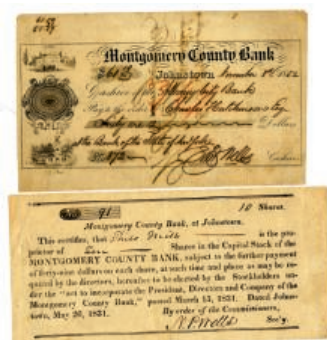 Montgomery County Bank
Johnstown November 1852
Cashier of the City Bank
Pay to the order of Charles Hutchinson Esq
Dollars
at the Bank of the State of
Cashier
No 91 10 Shares.
Montgomery County Bank, at Johnstown.
This certifies, that is the pro-
prietor of Ten Shares in the Capital Stock of the
MONTGOMERY COUNTY BANK, subject to the further payment
of forty-nine dollars on each share, at such time and place as may be re-
quired by the directors, hereafter to be elected by the Stockholders un-
der the "act to incorporate the President, Directors and Company of the
Montgomery County Bank," passed March 15, 1831. Dated Johns-
town, May 26, 1831. By order of the Commissioners,
N. P. Wells Sec'y.